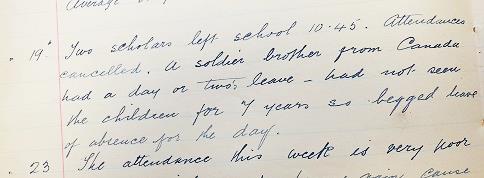 Average
" 19" Two scholars left school 10·45. Attendances
cancelled. A soldier brother from Canada
had a day or two's leave – had not seen
the children for 7 years so begged leave
of absence for the day.
" 23 The attendance this week is very poor
again cause